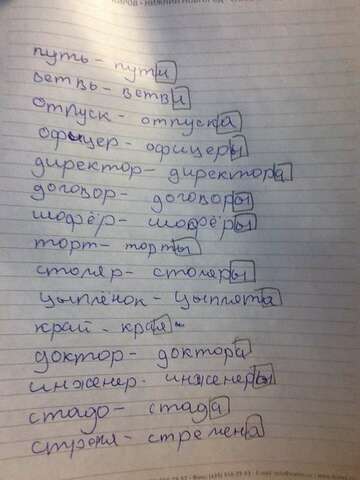 путь - пути
ветвь - ветви
отпуск - отпуска
офицер - офицеры
директор - директора
договор - договоры
шофёр - шофёры
торт - торты
столяр - столяры
цыплёнок - цыплята
край - края
доктор - доктора
инженер - инженеры
стадо - стада
стремя - стремена